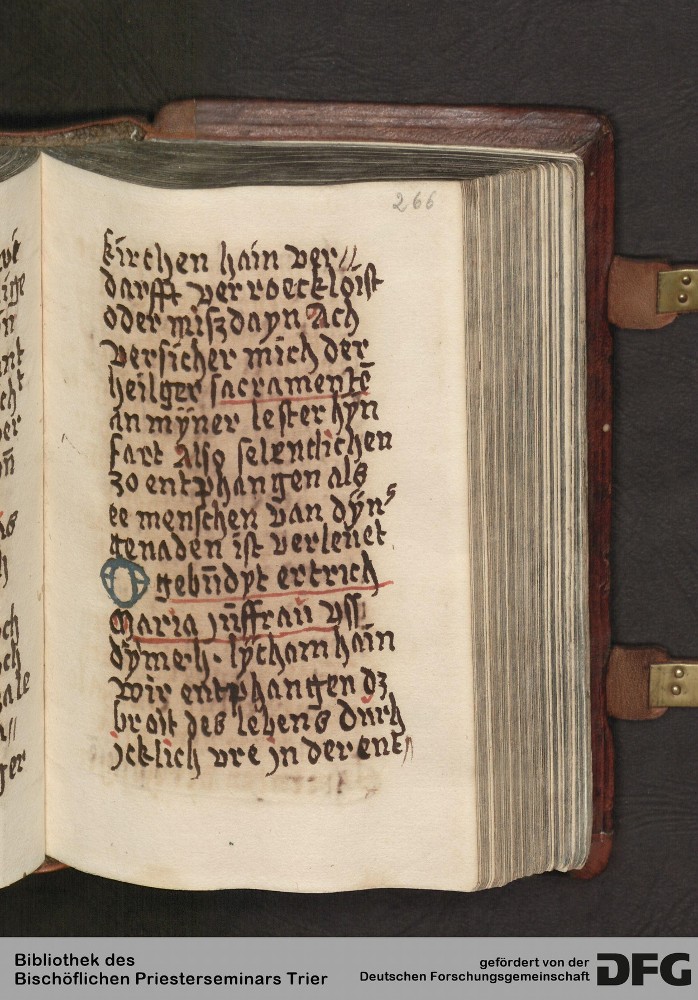 266
kirchen hain ver//
darfft verroeckloist
oder miszdayn Ach
versicher mich der
heilger sacramentē
an myner lester hyn
fart Also selenclichen
zo entphangen als
ee menschen van dÿn⁹
genaden ist verlenet
O gebn̄dyt ertrich
Maria jūffrau vss
dÿme h. lÿcham hain
wir entphangen dz
broit des lebens durch
jcklich vre jn der ent
Bibliothek des
Bischöflichen Priesterseminars Trier
gefördert von der
Deutschen Forschungsgemeinschaft DFG